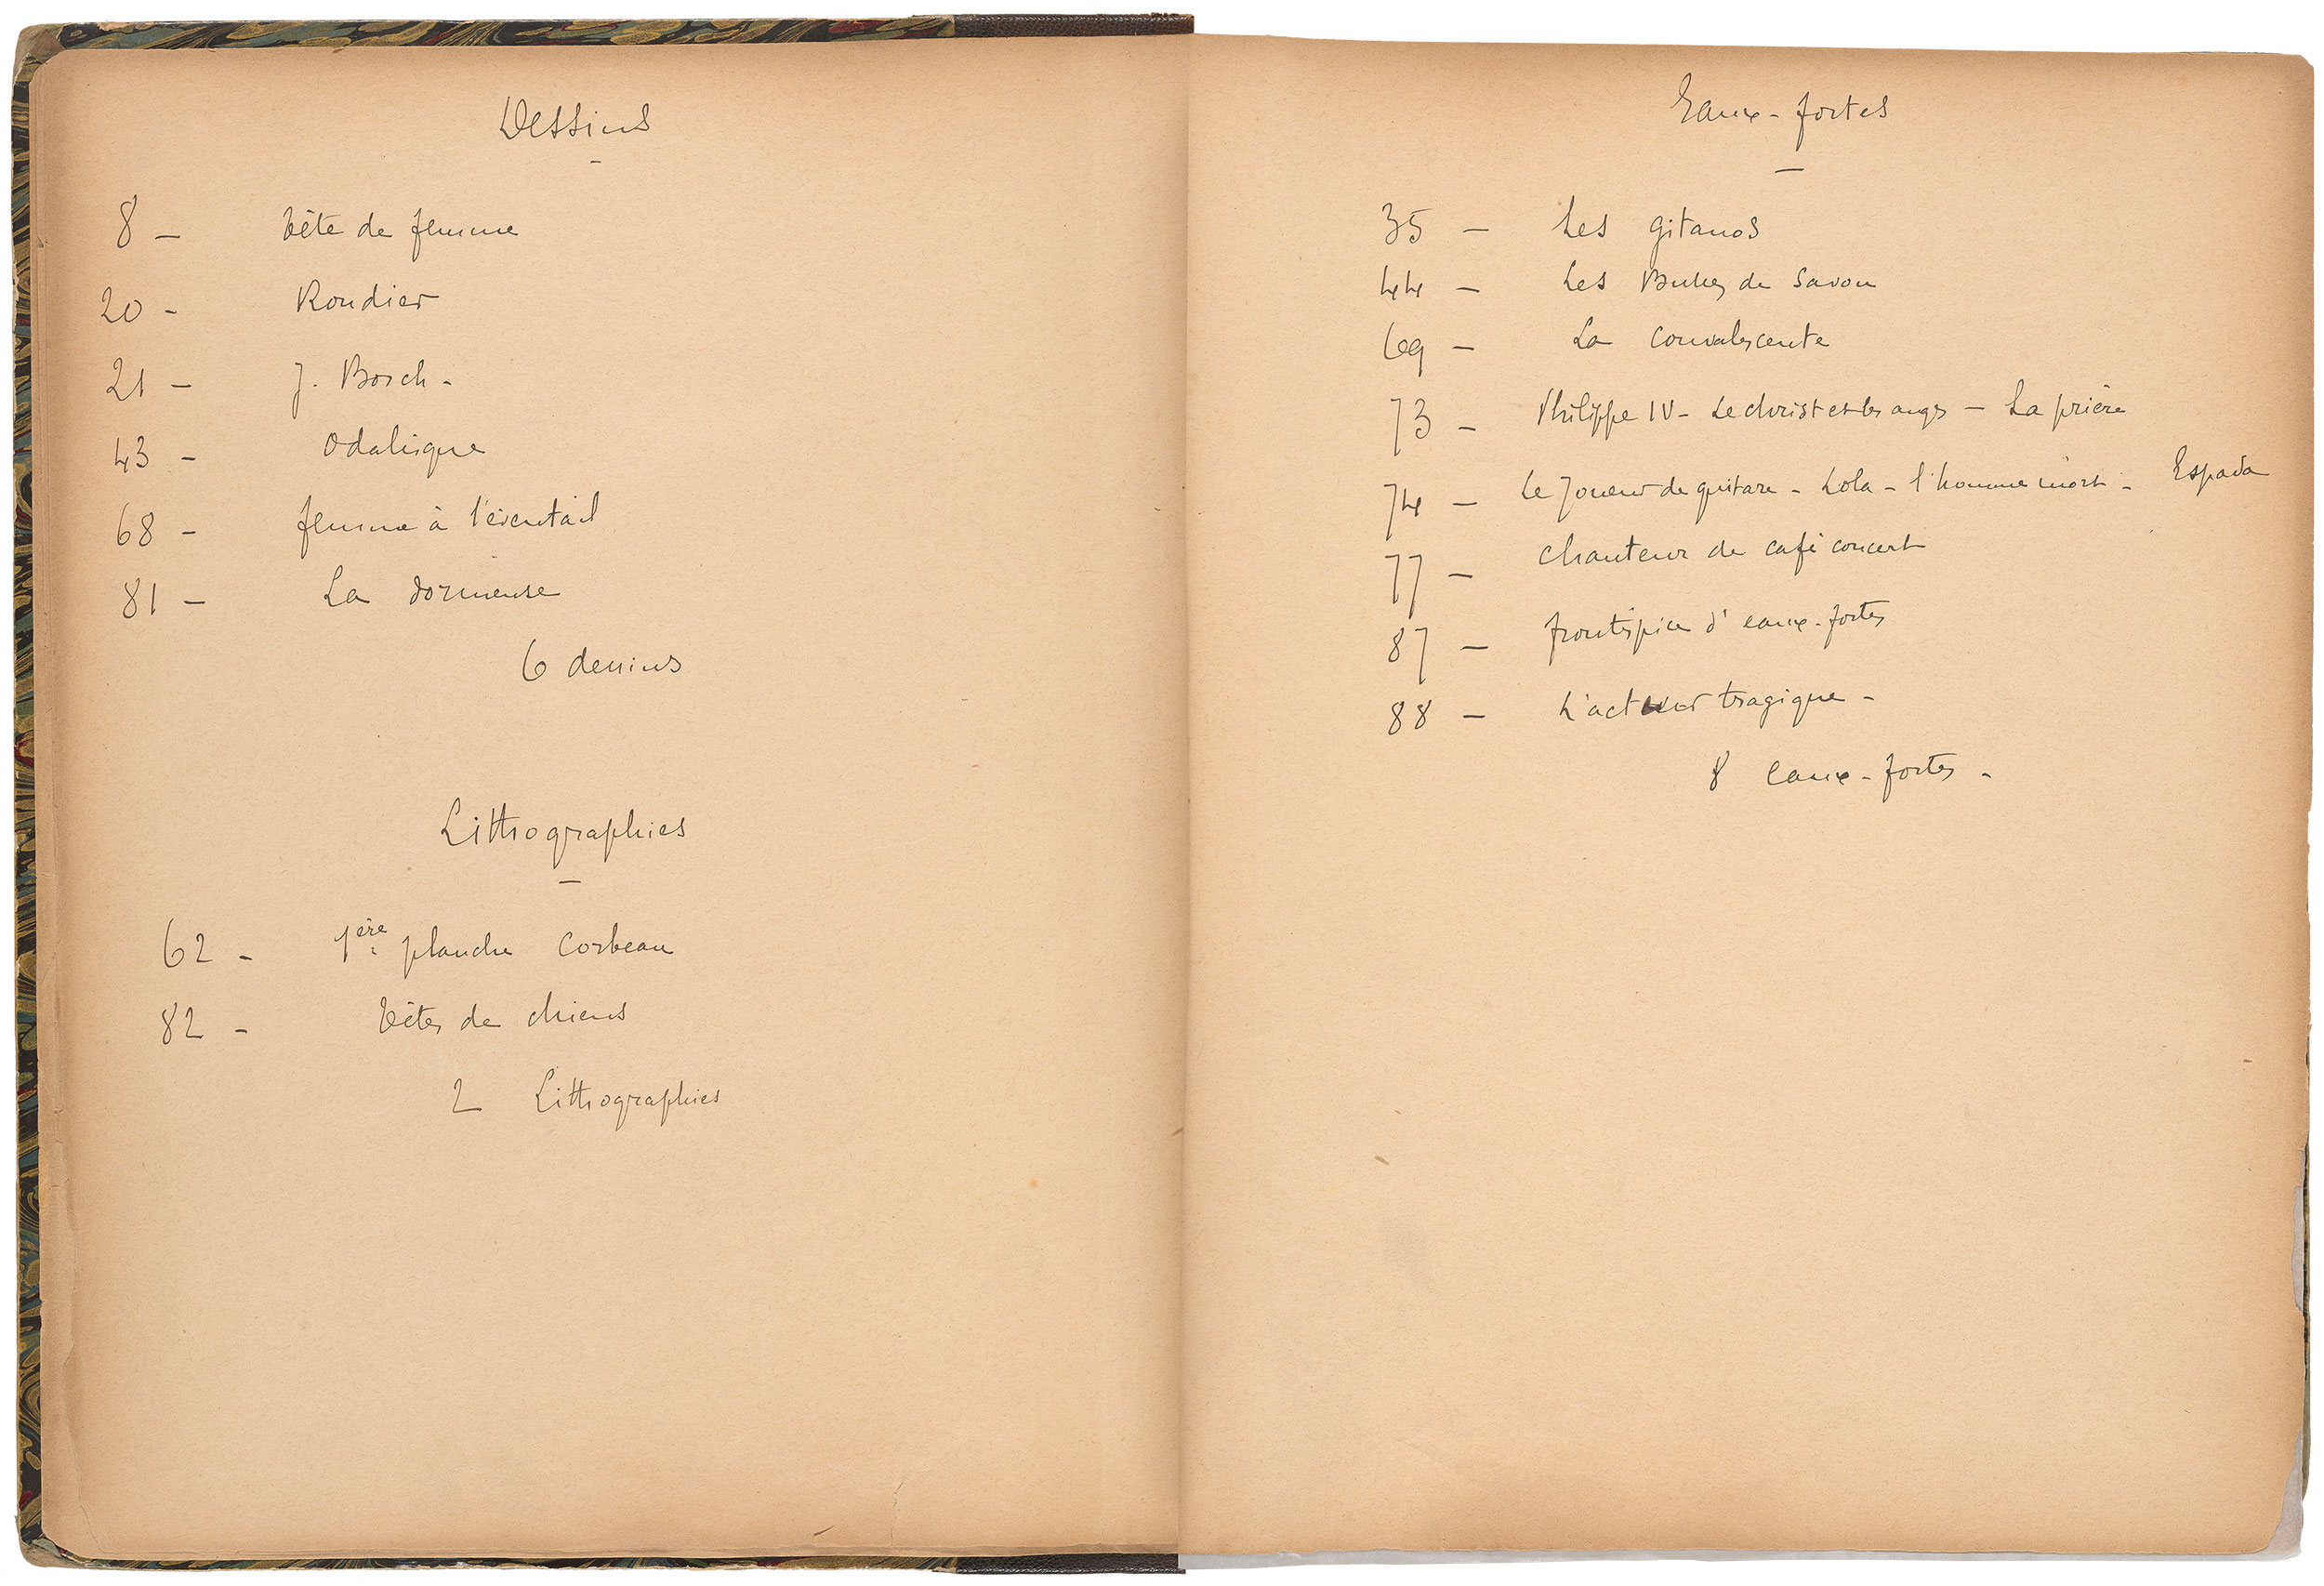 Dessins
8 - tête de femme
20 - Roudier
21 - J. Bosch -
43 - Odalisque
68 - femme à l'éventail
81 - La dormeuse
6 dessins
Lithographies
62 - 1ère planche Corbeau
82 - têtes de chiens
2 Lithographies
Eaux-fortes
35 - Les gitanos
44 - Les Bulles de Savon
69 - La convalescente
73 - Philippe IV - Le christ et les anges - La prière
74 - Le Joueur de guitare - Lola - l'homme mort - Espada
77 - chanteur de café concert
87 - frontispice d'eaux-fortes
88 - L'acteur tragique -
8 eaux-fortes -